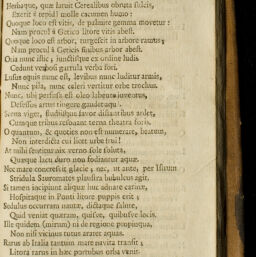 Herbaque, quæ latuit Cerealibus obruta sulcis,
Exerit è tepidâ molle cacumen humo:
Quoque loco est vitis, de palmite gemma movetur:
Nam procul à Getico litore vitis abest.
Quoque loco est arbor, turgescit in arbore ramus;
Nam procul à Geticis finibus arbor abest.
Otia nunc istic; junctisque ex ordine ludis
Cedunt verbosi garrula verba fori.
Lusus equis nunc est, levibus nunc luditur armis,
Nunc pila, nunc celeri vertitur orbe trochus.
Nunc, ubi perfusa est oleo labente juventus,
Defessos artus tingere gaudet aqua.
Scena viget, studiisque favor distantibus ardet,
Cumque tribus resonant terna theatra foris.
O quantum, & quoties non est numerare, beatum,
Non interdicta cui licet urbe frui!
At mihi sentitur nix verno sole soluta,
Quæque lacu duro non fodiantur aquæ.
Nec mare concrescit glacie; nec, ut ante, per Istrum
Stridula Sauromates plaustra bubulcus agit.
Si tamen incipiunt aliquæ huc adnare carinæ,
Hospitaque in Ponti litore puppis erit;
Sedulus occurram nautæ, dictaque salute,
Quid veniat quæram, quisve, quibusve locis.
Ille quidem (mirum) ni de regione propinqua,
Non nisi vicinas tutus araret aquas.
Rarus ab Italia tantum mare navita transit;
Litora rarus in hæc portubus orba venit.